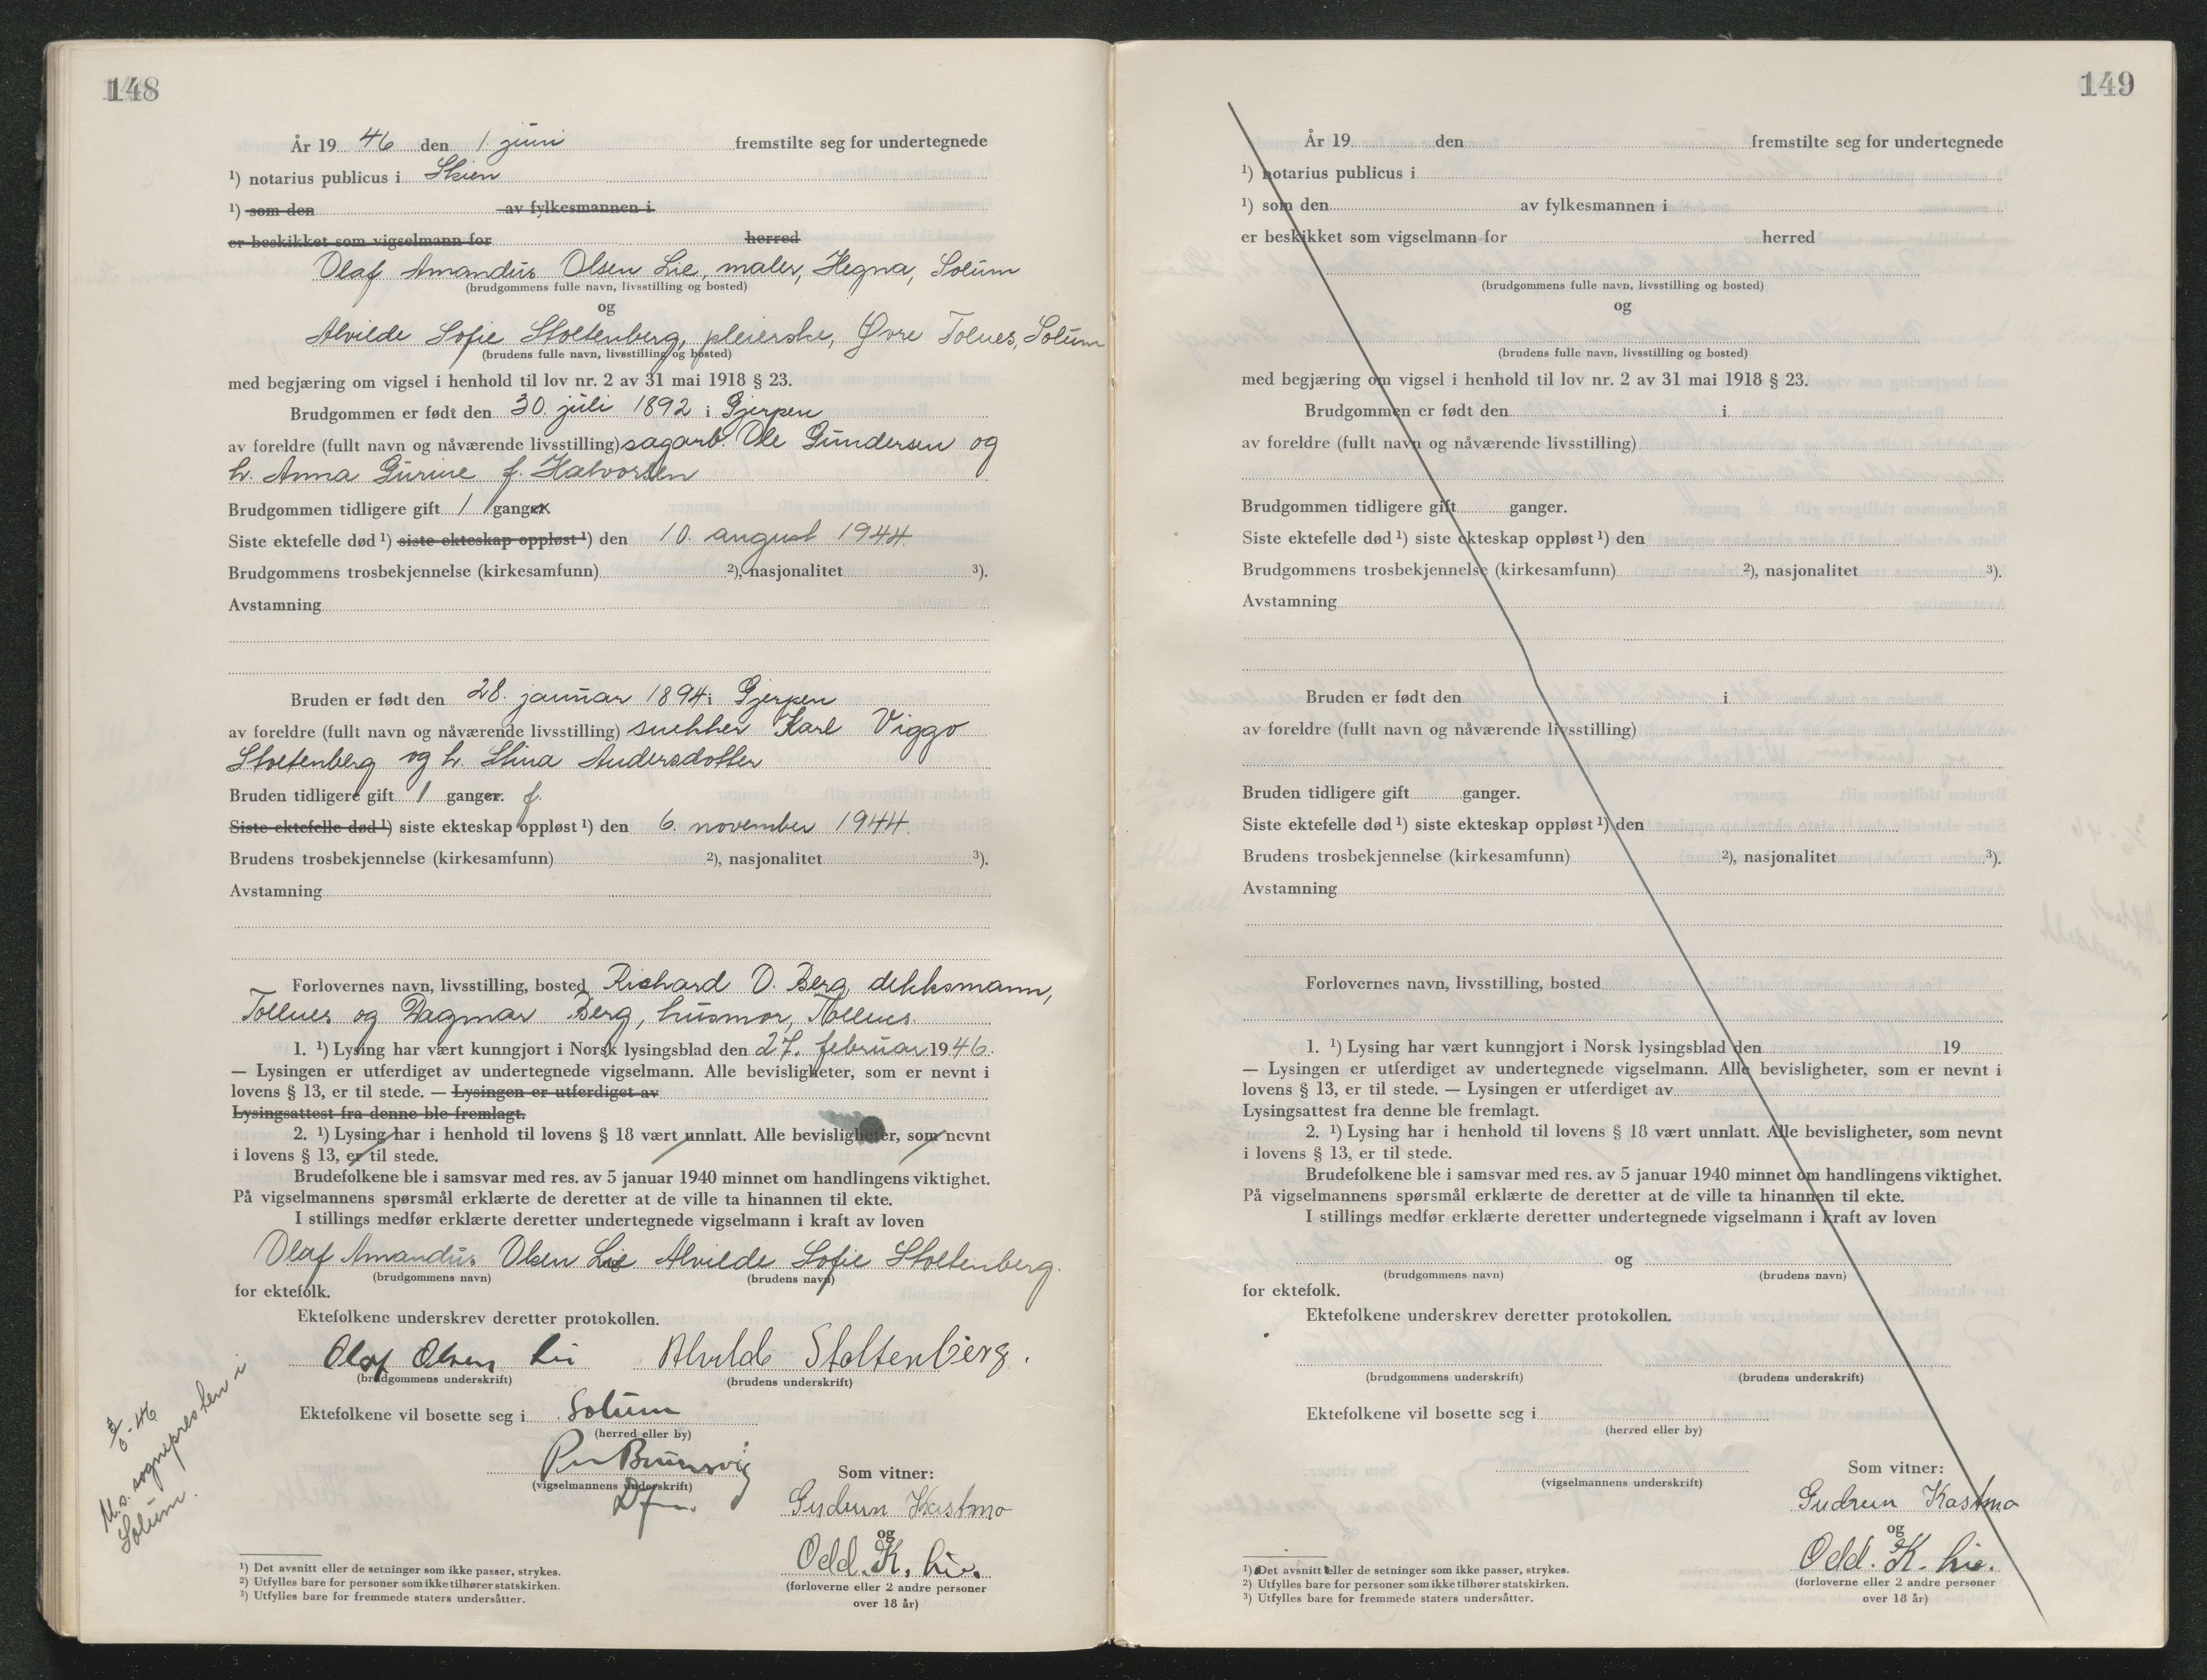 148
År 19 46 den 1. juni fremstilte seg for undertegnede
¹) notarius publicus i Skien
¹) som den av fylkesmannen i
er beskikket som vigselmann for herred
Olaf Amandus Olsen Lie, maler, Hegna, Solum
(brudgommens fulle navn, livsstilling og bosted)
og
Alvilde Sofie Stoltenberg, pleierske, Øvre Tolnes, Solum
(brudens fulle navn, livsstilling og bosted)
med begjæring om vigsel i henhold til lov nr. 2 av 31 mai 1918 § 23.
Brudgommen er født den 30. juli 1892 i Gjerpen
av foreldre (fullt navn og nåværende livsstilling) sagarb. Ole Gundersen og
h. Anna Gurine f. Halvorsen
Brudgommen tidligere gift 1 ganger
Siste ektefelle død ¹) siste ekteskap oppløst ¹) den 10. august 1944
Brudgommens trosbekjennelse (kirkesamfunn) ²), nasjonalitet ³).
Avstamning
Bruden er født den 28. januar 1894 i Gjerpen
av foreldre (fullt navn og nåværende livsstilling) snekker Karl Viggo
Stoltenberg og h. Stina Andersdotter
Bruden tidligere gift 1 ganger. f.
Siste ektefelle død ¹) siste ekteskap oppløst ¹) den 6. november 1944
Brudens trosbekjennelse (kirkesamfunn) ²), nasjonalitet ³).
Avstamning
Forlovernes navn, livsstilling, bosted Richard O. Berg, dekksmann,
Tollnes og Dagmar Berg, husmor, Tollnes.
1. ¹) Lysing har vært kunngjort i Norsk lysingsblad den 27. februar 1946.
— Lysingen er utferdiget av undertegnede vigselmann. Alle bevisligheter, som er nevnt i
lovens § 13, er til stede. — Lysingen er utferdiget av
Lysingsattest fra denne ble fremlagt.
2. ¹) Lysing har i henhold til lovens § 18 vært unnlatt. Alle bevisligheter, som nevnt
i lovens § 13, er til stede.
Brudefolkene ble i samsvar med res. av 5 januar 1940 minnet om handlingens viktighet.
På vigselmannens spørsmål erklærte de deretter at de ville ta hinannen til ekte.
I stillings medfør erklærte deretter undertegnede vigselmann i kraft av loven
Olaf Amandus Olsen Lie Alvilde Sofie Stoltenberg.
(brudgommens navn) (brudens navn)
for ektefolk.
Ektefolkene underskrev deretter protokollen.
Olaf Olsen Lie Alvilde Stoltenberg.
(brudgommens underskrift) (brudens underskrift)
Ektefolkene vil bosette seg i Solum
(herred eller by)
Brunsvig
(vigselmannens underskrift)
Som vitner:
Gudrun Kastmo
og
Odd. K. Lie.
(forloverne eller 2 andre personer
over 18 år)
3/6-46
M.s. sognepresten i
Solum.
¹) Det avsnitt eller de setninger som ikke passer, strykes.
²) Utfylles bare for personer som ikke tilhører statskirken.
³) Utfylles bare for fremmede staters undersåtter.
149
År 19 den fremstilte seg for undertegnede
¹) notarius publicus i
¹) som den av fylkesmannen i
er beskikket som vigselmann for herred
(brudgommens fulle navn, livsstilling og bosted)
og
(brudens fulle navn, livsstilling og bosted)
med begjæring om vigsel i henhold til lov nr. 2 av 31 mai 1918 § 23.
Brudgommen er født den i
av foreldre (fullt navn og nåværende livsstilling)
Brudgommen tidligere gift ganger.
Siste ektefelle død ¹) siste ekteskap oppløst ¹) den
Brudgommens trosbekjennelse (kirkesamfunn) ²), nasjonalitet ³).
Avstamning
Bruden er født den i
av foreldre (fullt navn og nåværende livsstilling)
Bruden tidligere gift ganger.
Siste ektefelle død ¹) siste ekteskap oppløst ¹) den
Brudens trosbekjennelse (kirkesamfunn) ²), nasjonalitet ³).
Avstamning
Forlovernes navn, livsstilling, bosted
1. ¹) Lysing har vært kunngjort i Norsk lysingsblad den 19
— Lysingen er utferdiget av undertegnede vigselmann. Alle bevisligheter, som er nevnt i
lovens § 13, er til stede. — Lysingen er utferdiget av
Lysingsattest fra denne ble fremlagt.
2. ¹) Lysing har i henhold til lovens § 18 vært unnlatt. Alle bevisligheter, som nevnt
i lovens § 13, er til stede.
Brudefolkene ble i samsvar med res. av 5 januar 1940 minnet om handlingens viktighet.
På vigselmannens spørsmål erklærte de deretter at de ville ta hinannen til ekte.
I stillings medfør erklærte deretter undertegnede vigselmann i kraft av loven
og
(brudgommens navn) (brudens navn)
for ektefolk.
Ektefolkene underskrev deretter protokollen.
(brudgommens underskrift) (brudens underskrift)
Ektefolkene vil bosette seg i
(herred eller by)
(vigselmannens underskrift)
Som vitner:
Gudrun Kastmo
og
Odd. K. Lie.
(forloverne eller 2 andre personer
over 18 år)
¹) Det avsnitt eller de setninger som ikke passer, strykes.
²) Utfylles bare for personer som ikke tilhører statskirken.
³) Utfylles bare for fremmede staters undersåtter.